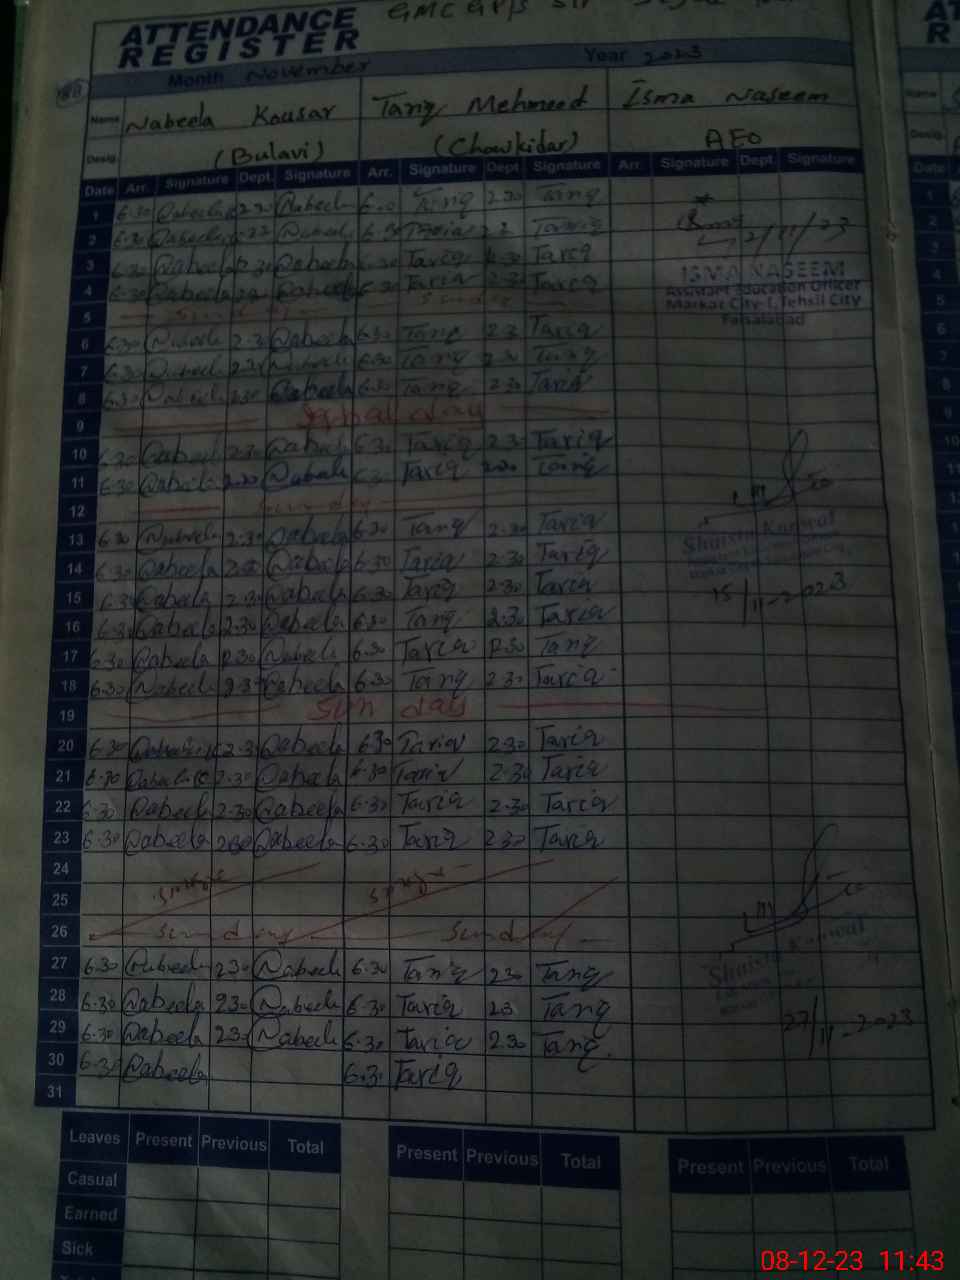 GMC GPS
ATTENDANCE
REGISTER
Month November Year 2023
Name Nabeela Kausar Tariq Mehmood Isma Naseem
Desig. (Bulavi) (Chowkidar) AEO
Date Arr. Signature Dept. Signature Arr. Signature Dept Signature Arr. Signature Dept. Signature
1 6.30 Nabeela 2.30 Nabeela 6.30 Tariq 2.30 Tariq
2 6.30 Nabeela Nabeela 6.30 Tariq Tariq 2/11/23
3 6.30 Nabeela 2.30 Nabeela 6.30 Tariq 2.30 Tariq
ISMA NASEEM
4 6.30 Nabeela Nabeela 6.30 Tariq 2.30 Tariq
Assistant Education Officer
5 Sunday Sunday
Markaz City-I, Tehsil City
Faisalabad
6 6.30 Nabeela 2.30 Nabeela 6.30 Tariq 2.30 Tariq
7 6.30 Nabeela 2.30 Nabeela 6.30 Tariq 2.30 Tariq
8 6.30 Nabeela 2.30 Nabeela 6.30 Tariq 2.30 Tariq
9 Iqbal day
10 6.30 Nabeela 2.30 Nabeela 6.30 Tariq 2.30 Tariq
11 6.30 Nabeela 2.30 Nabeela 6.30 Tariq 2.30 Tariq
12 Sunday
13 6.30 Nabeela 2.30 Nabeela 6.30 Tariq 2.30 Tariq
Shaista Kanwal
14 6.30 Nabeela 2.30 Nabeela 6.30 Tariq 2.30 Tariq
15 6.30 Nabeela 2.30 Nabeela 6.30 Tariq 2.30 Tariq 15/11-2023
16 6.30 Nabeela 2.30 Nabeela 6.30 Tariq 2.30 Tariq
17 6.30 Nabeela 2.30 Nabeela 6.30 Tariq 2.30 Tariq
18 6.30 Nabeela 2.30 Nabeela 6.30 Tariq 2.30 Tariq
19 Sun day
20 6.30 Nabeela 2.30 Nabeela 6.30 Tariq 2.30 Tariq
21 6.30 Nabeela 2.30 Nabeela 6.30 Tariq 2.30 Tariq
22 6.30 Nabeela 2.30 Nabeela 6.30 Tariq 2.30 Tariq
23 6.30 Nabeela 2.30 Nabeela 6.30 Tariq 2.30 Tariq
24
25
26 Sunday Sunday
Shaista Kanwal
27 6.30 Nabeela 2.30 Nabeela 6.30 Tariq 2.30 Tariq
28 6.30 Nabeela 2.30 Nabeela 6.30 Tariq 2.3 Tariq
27/11-2023
29 6.30 Nabeela 2.3 Nabeela 6.30 Tariq 2.30 Tariq
30 6.30 Nabeela 6.30 Tariq
31
Leaves Present Previous Total Present Previous Total Present Previous Total
Casual
Earned
Sick
08-12-23 11:43